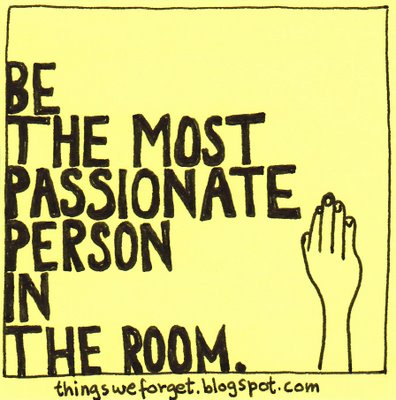 BE
THE MOST
PASSIONATE
PERSON
IN
THE ROOM.
thingsweforget.blogspot.com